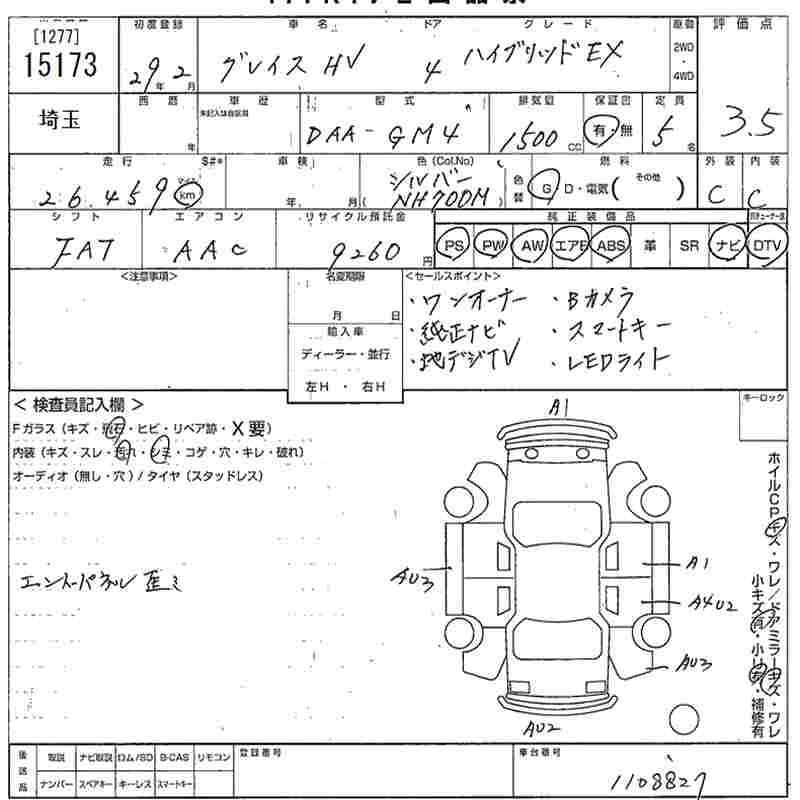 [1277]
15173
初度登録
車名
ドア
グレード
駆動
評価点
29年2月
グレイス HV
4
ハイブリッドEX
2WD
・
4WD
3.5
埼玉
西暦
車歴
型式
排気量
保証書
定員
年
未記入は自家用
DAA-GM4
1500cc
有・無
5名
走行
$#*
車検
色(Col.No)
色替
燃料
外装
内装
26,459
マイル
km
年 月
シルバー
(NH700M)
G・D・電気(その他 )
C
C
シフト
エアコン
リサイクル預託金
純正装備品
FAT
AAC
9260円
PS PW AW エアB ABS 革 SR ナビ DTV
<注意事項>
名変期限
月 日
輸入車
ディーラー・並行
左H・右H
<セールスポイント>
・ワンオーナー ・Bカメラ
・純正ナビ ・スマートキー
・地デジTV ・LEDライト
<検査員記入欄>
キーロック
Fガラス(キズ・飛石・ヒビ・リペア跡・X要)
内装(キズ・スレ・汚れ・シミ・コゲ・穴・キレ・破れ)
オーディオ(無し・穴)/タイヤ(スタッドレス)
エンドパネル歪ミ
A1
AU3
A1
A4U2
AU3
AU2
ホイルCPキズ・ワレ/ドアミラーキズ・ワレ
小キズ有・小凹有・補修有
後送品
取説 ナビ取説 ロム/SD B-CAS リモコン
ナンバー スペアキー キーレス スマートキー
登録番号
車台番号
1108827